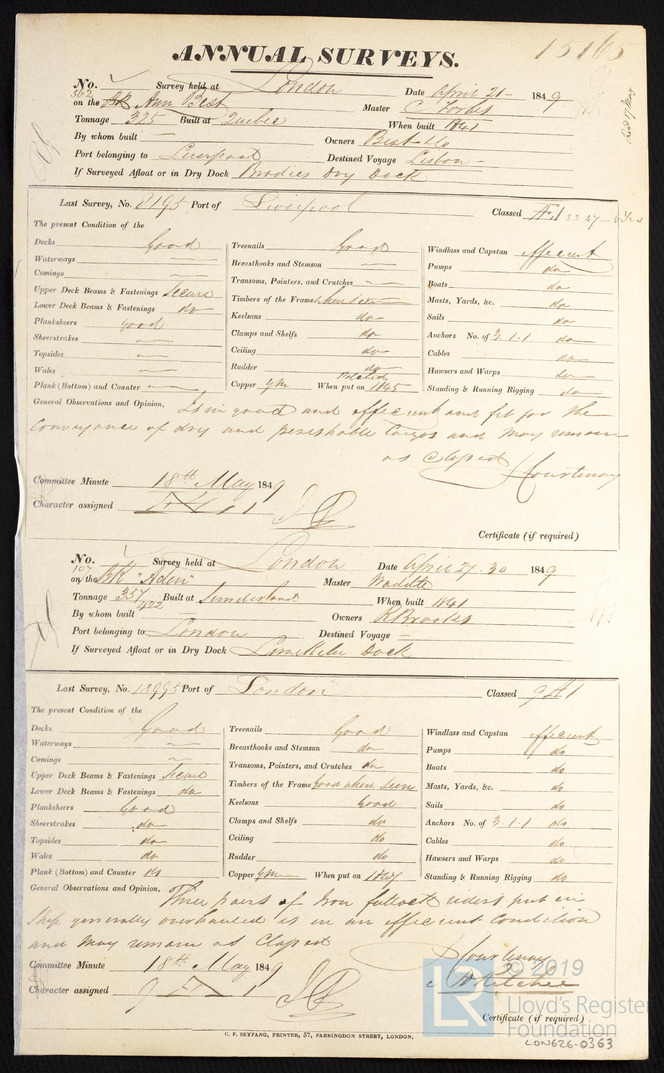 ANNUAL SURVEYS. 15165
No. 562 Survey held at London Date April 21 - 1849
on the Bk Ann Best Master C Forbes
Tonnage 325 Built at Quebec When built 1841
By whom built — Owners Best & Co
Port belonging to Liverpool Destined Voyage Lisbon -
If Surveyed Afloat or in Dry Dock Brodies Dry Dock
Last Survey, No. 8195 Port of Liverpool Classed Æ1
The present Condition of the
Decks Good Treenails Good Windlass and Capstan efficient
Waterways — Breasthooks and Stemson — Pumps do
Comings — Transoms, Pointers, and Crutches — Boats do
Upper Deck Beams & Fastenings Secure Timbers of the Frame where seen Masts, Yards, &c. do
Lower Deck Beams & Fastenings do Keelsons do Sails do
Planksheers good Clamps and Shelfs do Anchors No. of 3.1.1 do
Sheerstrakes — Ceiling do Cables do
Topsides — Rudder do Hawsers and Warps do
Wales — Copper ym When put on 1845 Standing & Running Rigging do
Plank (Bottom) and Counter —
General Observations and Opinion, Is in good and efficient and fit for the
conveyance of dry and perishable Cargos and may remain
as Classed Courtenay
Committee Minute 18th May 1849
Character assigned Æ 1
Certificate (if required)
No. 107 Survey held at London Date April 27. 30 1849
on the Bk "Aden" Master
Tonnage 357/422 Built at Sunderland When built 1841
By whom built Owners R Brooks
Port belonging to London Destined Voyage —
If Surveyed Afloat or in Dry Dock Limekiln Dock
Last Survey, No. 13995 Port of London Classed 9 Æ 1
The present Condition of the
Decks Good Treenails Good Windlass and Capstan efficient
Waterways — Breasthooks and Stemson do Pumps do
Comings — Transoms, Pointers, and Crutches do Boats do
Upper Deck Beams & Fastenings Secure Timbers of the Frame Good where seen Masts, Yards, &c. do
Lower Deck Beams & Fastenings do Keelsons Good Sails do
Planksheers Good Clamps and Shelfs do Anchors No. of 3.1.1 do
Sheerstrakes do Ceiling do Cables do
Topsides do Rudder do Hawsers and Warps do
Wales do Copper ym When put on 1847 Standing & Running Rigging do
Plank (Bottom) and Counter do
General Observations and Opinion, Three pairs of Iron fullock riders put in
Ship generally overhauled is in an efficient Condition
and may remain as Classed
Courtenay
Committee Minute 18th May 1849
Character assigned 9 Æ 1
Certificate (if required)
C. F. SEYFANG, PRINTER, 57, FARRINGDON STREET, LONDON.
LR © 2019
Lloyd's Register
Foundation
LON626-0363